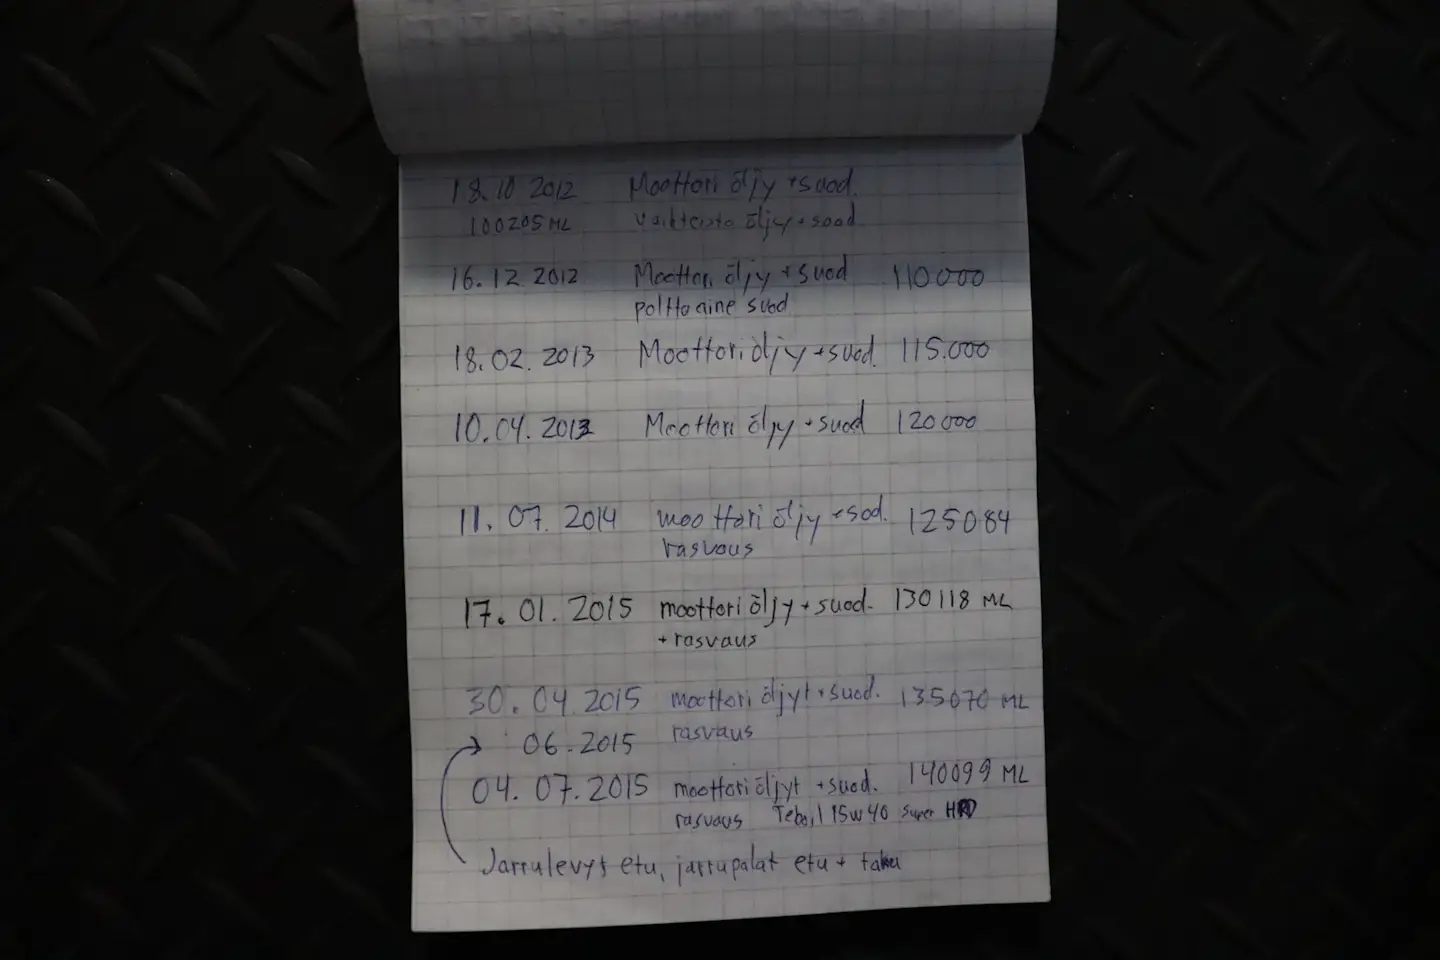 18.10 2012 Moottori öljy + suod.
100205 ML Vaihteisto öljy + suod
16.12.2012 Moottori öljy + suod 110000
polttoaine suod
18.02.2013 Moottori öljy + suod. 115.000
10.04.2013 Moottori öljy + suod 120000
11.07.2014 moottori öljy + sod. 125084
rasvaus
17.01.2015 moottori öljy + suod. 130118 ML
+ rasvaus
30.04.2015 moottori öljyt + suod. 135070 ML
rasvaus
06.2015
04.07.2015 moottori öljyt + suod. 140099 ML
rasvaus Teboil 15w40 super HPD
Jarrulevyt etu, jarrupalat etu + taka